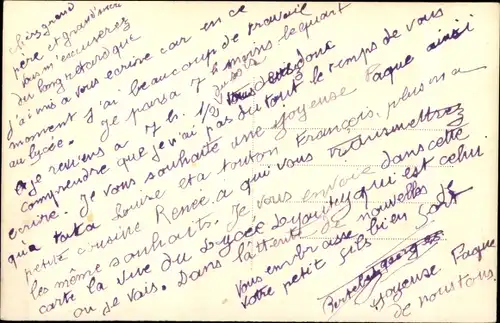 Chers grand
père et grand'mère
vous m'excuserez
du long retard que
j'ai mis a vous ecrire car en ce
moment j'ai beaucoup de travail
au lycée. Je pars a 7 h moins le quart
et je reviens a 7 h. 1/2 vous donc
comprendre que je n'ai pas du tout le temps de vous
ecrire. Je vous souhaite une joyeuse Paque ainsi
qu'a tata Louise et a tonton François, plus ma
petite cousine Renée a qui vous transmettrez
les même souhaits. Je vous envoie dans cette
carte la vue du Lycée qui est celui
ou je vais. Dans l'attente de nouvelles de
vous embrasse
votre petit fils bien
Joyeuse Paque
de nous tous.